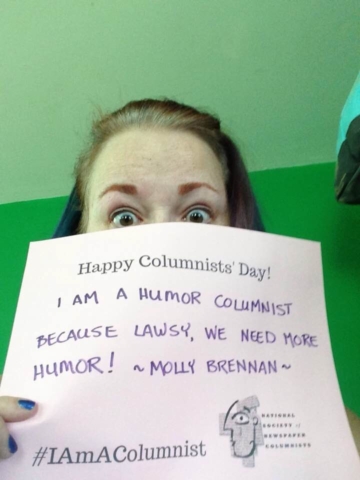 Happy Columnists' Day!
I AM A HUMOR COLUMNIST
BECAUSE LAWSY, WE NEED MORE
HUMOR! ~ MOLLY BRENNAN ~
NATIONAL
SOCIETY of
NEWSPAPER
COLUMNISTS
#IAmAColumnist